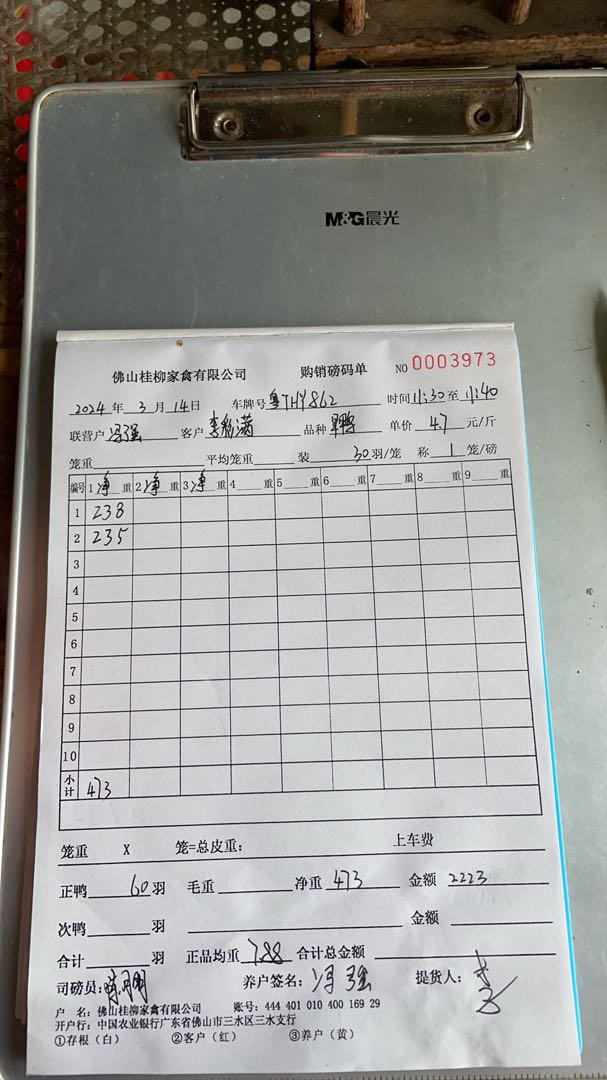 M&G晨光
佛山桂柳家禽有限公司 购销磅码单 NO 0003973
2024 年 3 月 14 日 车牌号 粤THY862 时间 11:30 至 11:40
联营户 冯强 客户 品种 单价 4.7 元/斤
笼重 平均笼重 装 30 羽/笼 称 1 笼/磅
编号 1 净 重 2 净 重 3 净 重 4 重 5 重 6 重 7 重 8 重 9 重
1 238
2 235
3
4
5
6
7
8
9
10
小计 473
笼重 X 笼=总皮重: 上车费
正鸭 60 羽 毛重 净重 473 金额 2223
次鸭 羽 金额
合计 羽 正品均重 7.88 合计总金额
司磅员: 养户签名: 冯强 提货人:
户 名: 佛山桂柳家禽有限公司 账号: 444 401 010 400 169 29
开户行: 中国农业银行广东省佛山市三水区三水支行
①存根(白) ②客户(红) ③养户(黄)